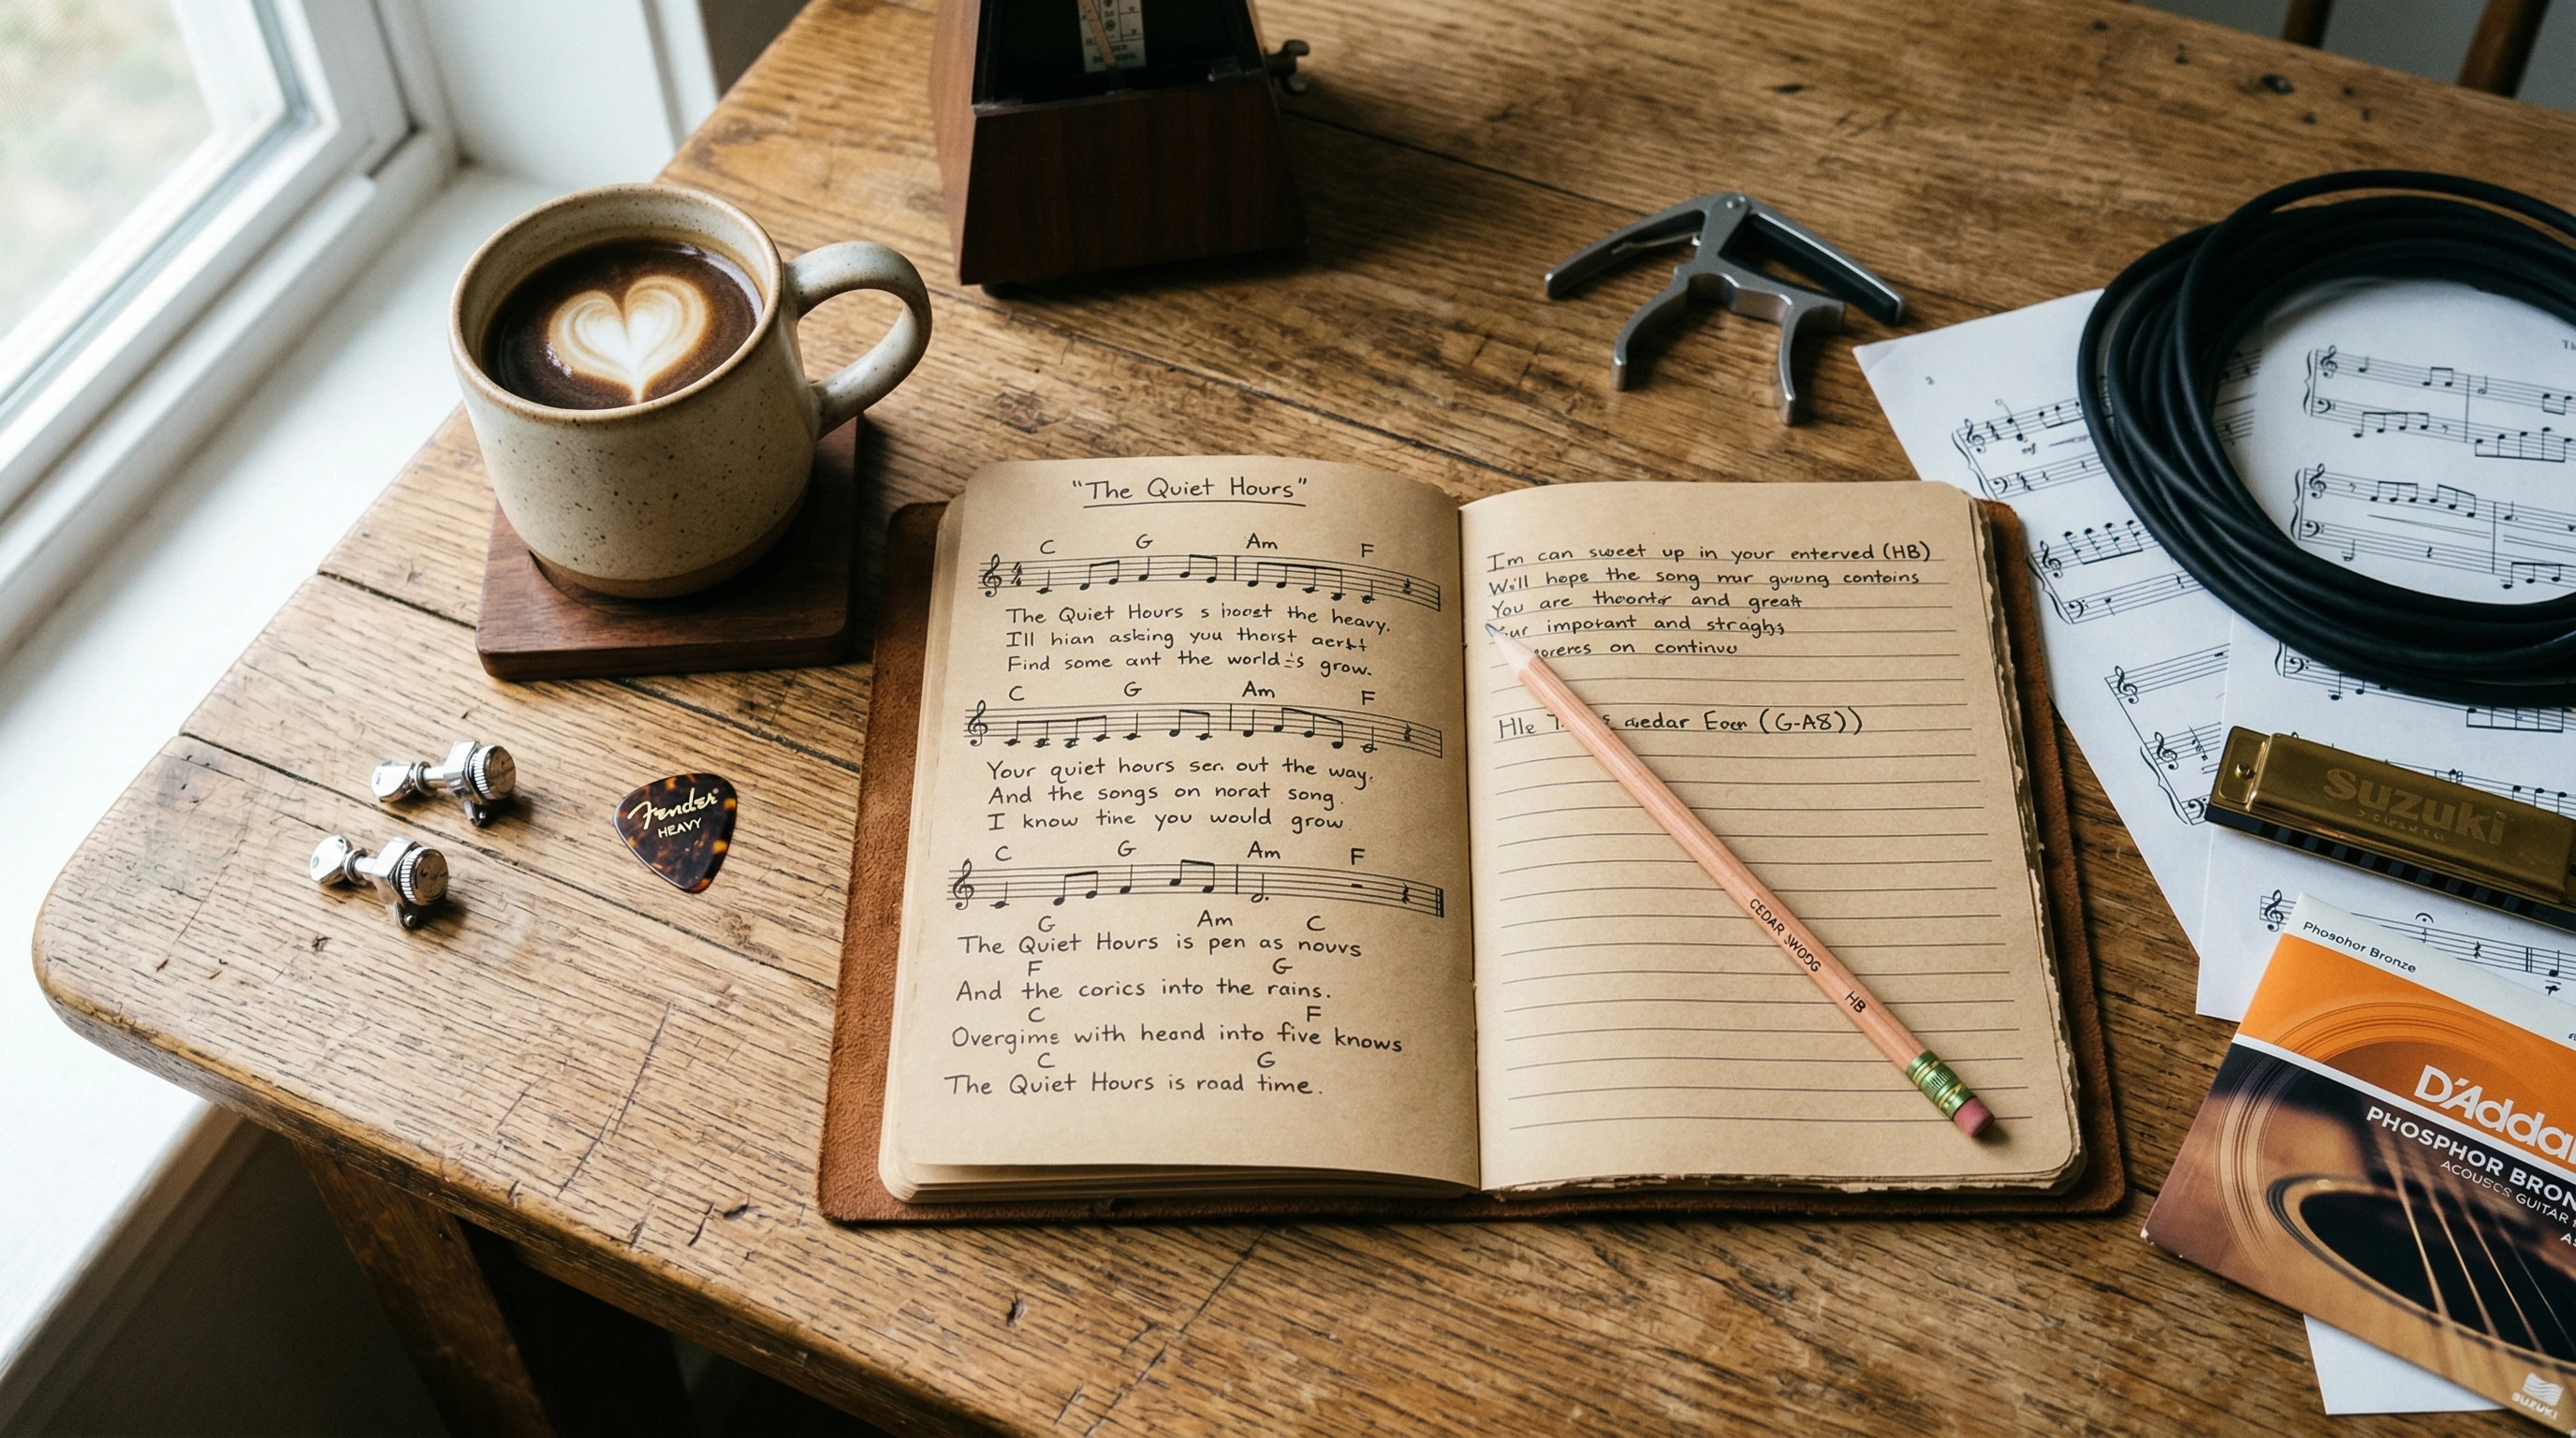 "The Quiet Hours"
C G Am F
The Quiet Hours s hoost the heavy.
I'll hian asking you thorst
Find some ant the world's grow.
C G Am F
Your quiet hours ser. out the way.
And the songs on norat song.
I know tine you would grow
C G Am F
G Am C
The Quiet Hours is pen as nouvs
F G
And the corics into the rains.
C F
Overgime with heand into five knows
C G
The Quiet Hours is road time.
Im can sweet up in your enterved (HB)
Will hope the song mur contoins
You are and great
important and
on continuu
aedar Eocn (G-A8))
CEDAR
HB
Fender
HEAVY
suzuki
Phosphor Bronze
D'Addar
PHOSPHOR BRON
GUITAR
SUZUKI